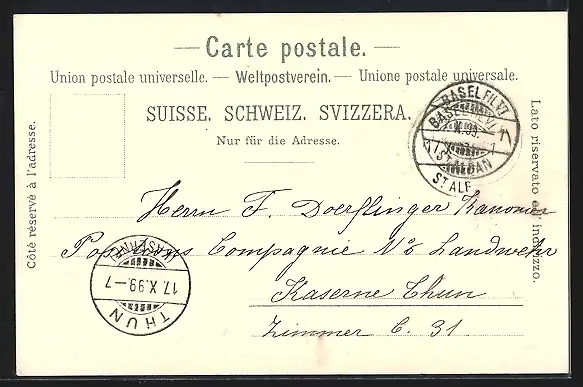 Carte postale.
Union postale universelle. — Weltpostverein. — Unione postale universale.
SUISSE. SCHWEIZ. SVIZZERA.
Nur für die Adresse.
Côté réservé à l'adresse.
Lato riservato all' indirizzo.
BASEL FIL.
BASEL
X.99.
ST. ALBAN
ST. ALB
Herrn F. Doerflinger Kanonier
Positions Compagnie No 2 Landwehr
Kaserne Thun
Zimmer C. 31
(KASERNE)
17.X.99.—7
THUN